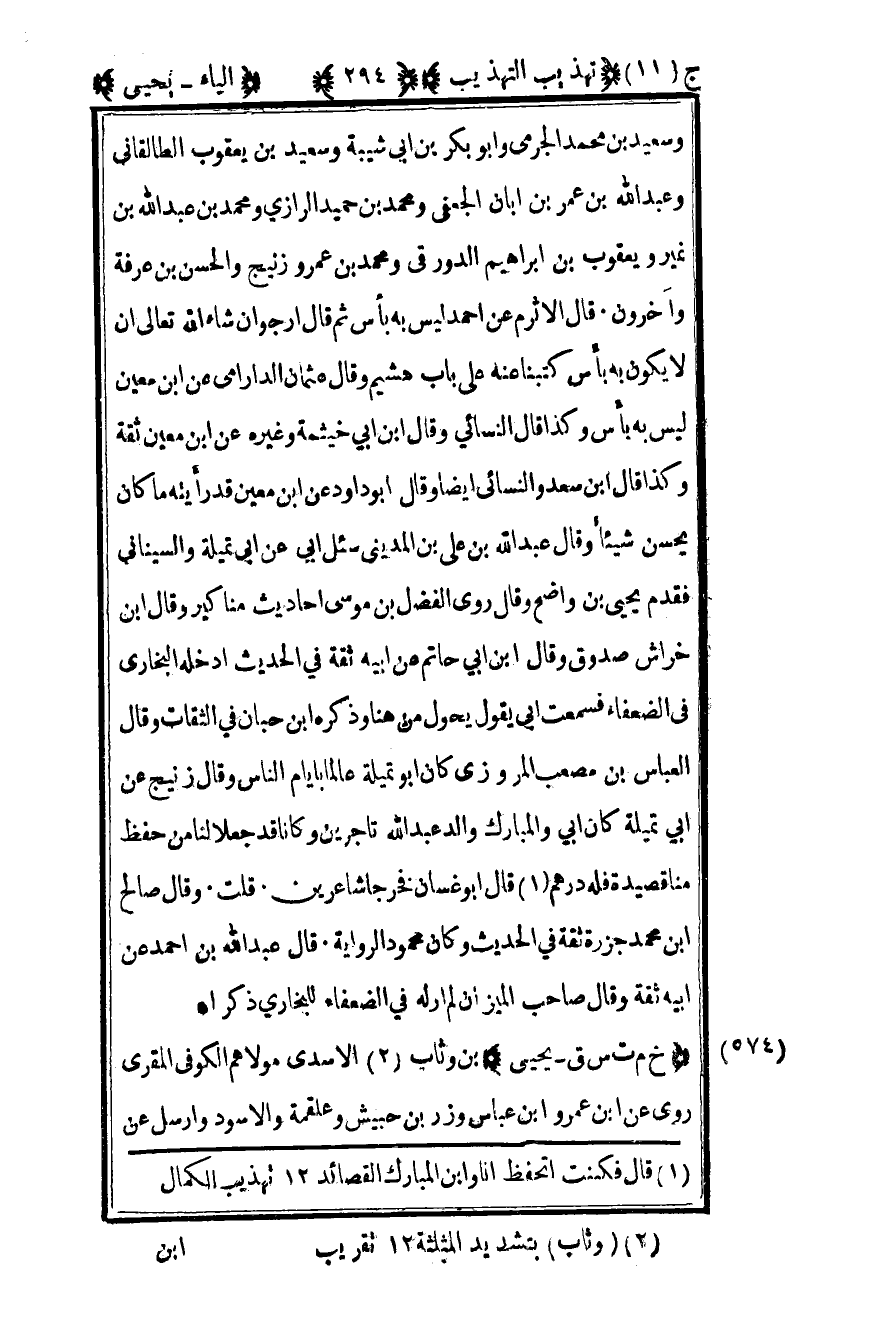 ج (١١) ﴿ تهذيب التهذيب ﴾ ﴿ ٢٩٤ ﴾ ﴿ الياء - يحيى ﴾
وسعيد بن محمد الجرمى وابو بكر بن ابي شيبة وسعيد بن يعقوب الطالقانى
وعبدالله بن عمر بن ابان الجعفى ومحمد بن حميد الرازي ومحمد بن عبدالله بن
نمير ويعقوب بن ابراهيم الدورقى ومحمد بن عمرو زنيج والحسن بن عرفة
وآخرون · قال الاثرم عن احمد ليس به بأس ثم قال ارجو ان شاء الله تعالى ان
لا يكون به بأس كتبنا عنه على باب هشيم وقال عثمان الدارامى عن ابن معين
ليس به بأس وكذا قال النسائي وقال ابن ابي خيثمة وغيره عن ابن معين ثقة
وكذا قال ابن سعد والنسائى ايضا وقال ابوداود عن ابن معين قد رأيته ما كان
يحسن شيئاً وقال عبدالله بن على بن المدينى سئل ابي عن ابى تميلة والسينانى
فقدم يحيى بن واضح وقال روى الفضل بن موسى احاديث مناكير وقال ابن
خراش صدوق وقال ابن ابي حاتم عن ابيه ثقة في الحديث ادخله البخارى
فى الضعفاء فسمعت ابي يقول يحول من هنا وذكره ابن حبان في الثقات وقال
العباس بن مصعب المروزى كان ابو تميلة عالما بايام الناس وقال زنيج عن
ابي تميلة كان ابي والمبارك والد عبدالله تاجرين وكانا قد جعلا لنا من حفظ
منا قصيدة فله درهم (١) قال ابو غسان فخرجا شاعرين · قلت · وقال صالح
ابن محمد جزرة ثقة في الحديث وكان محمود الرواية · قال عبدالله بن احمد عن
ابيه ثقة وقال صاحب الميزان لم ار له في الضعفاء للبخاري ذكرا ه
﴿ خ م ت س ق - يحيى ﴾ بن وثاب (٢) الاسدى مولاهم الكوفى المقرى (٥٧٤)
روى عن ابن عمرو ابن عباس وزر بن حبيش وعلقمة والاسود وارسل عن
(١) قال فكنت اتحفظ انا وابن المبارك القصائد ١٢ تهذيب الكمال
(٢) (وثاب) بتشديد المثلثة ١٢ تقريب ابن